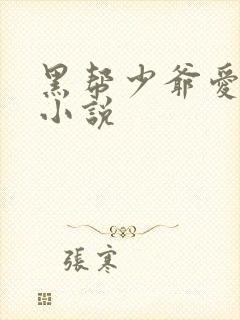 黑帮少爷愛
小説
張寒